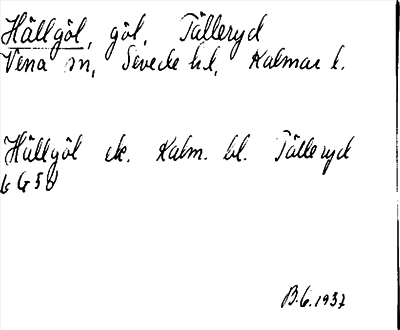 Hällgöl, göl, Tälleryd
Vena sn, Sevede hd, Kalmar l.
Hällgöl ek. Kalm. bl. Tälleryd
6 G 5 d
B.6.1937